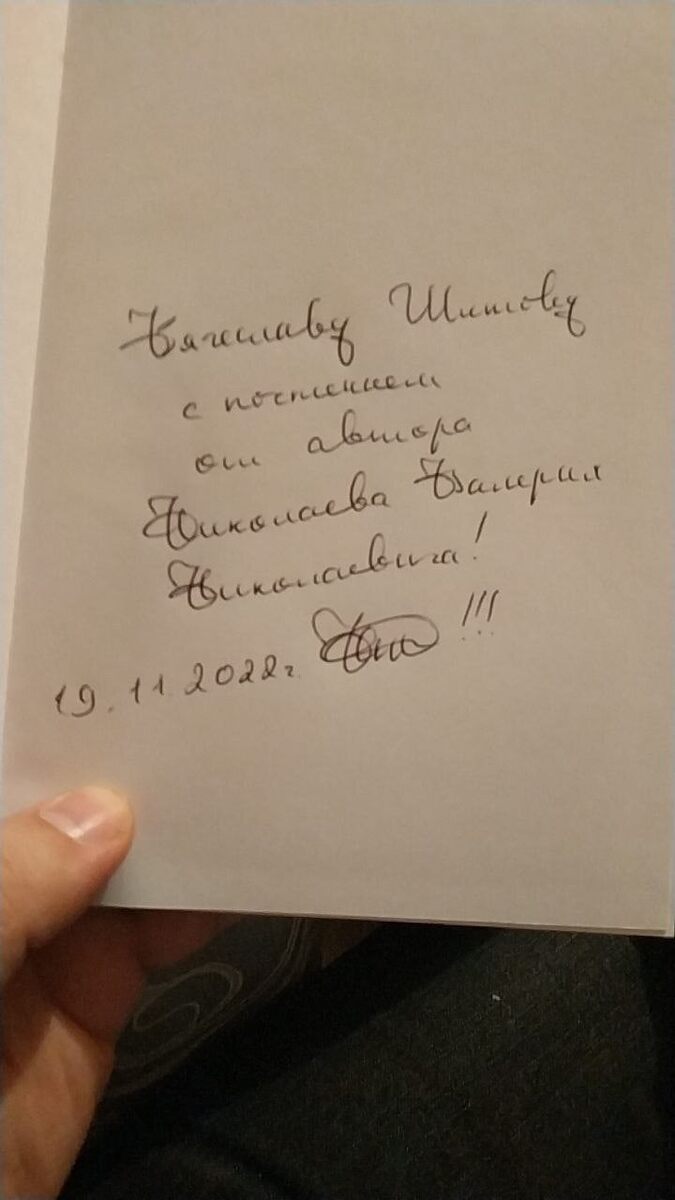 Вячеславу Шитову
с почтением
от автора
Николаева Валерия
Николаевича!
19.11.2022г. !!!